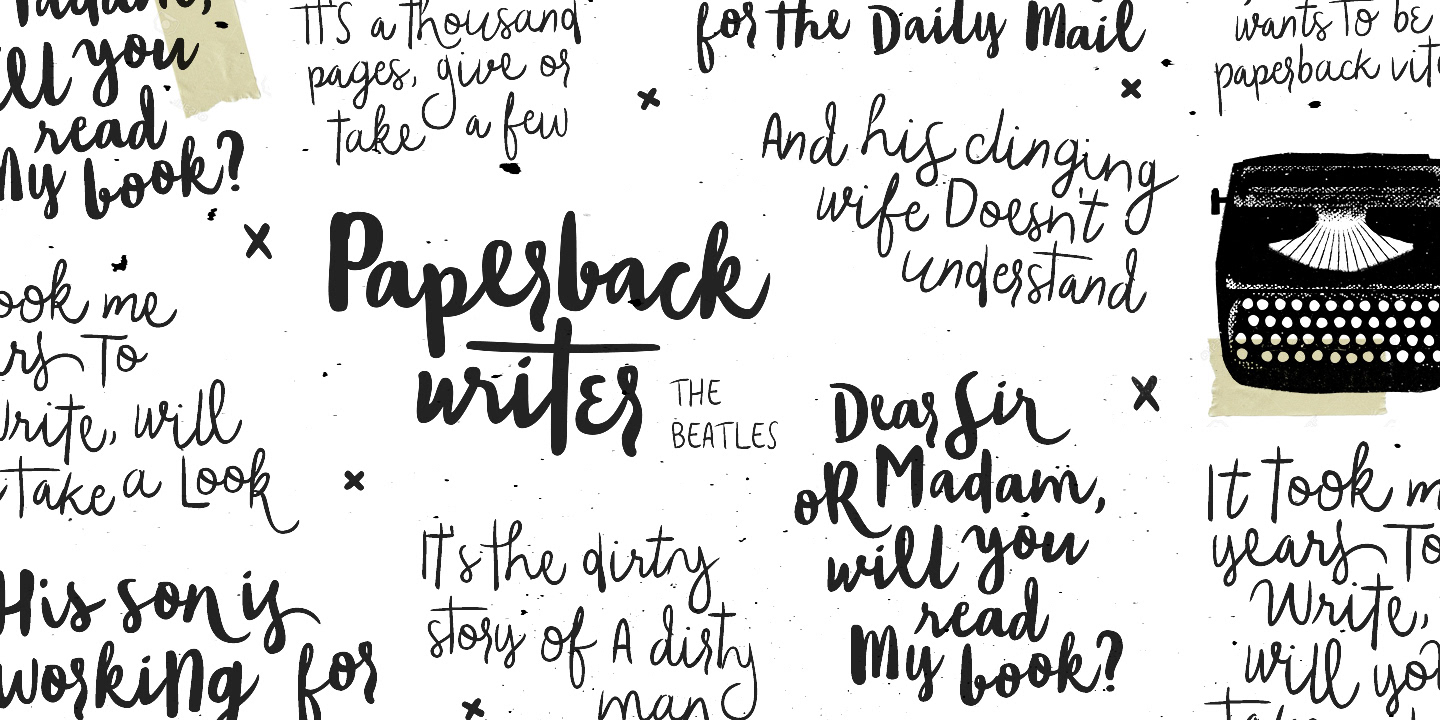 Madam,
will you
read
My book?
IT'S a thousand
pages, give or
take a few
for the Daily Mail
wants To be
paperback
And his clinging
wife Doesn't
understand
Paperback
writer
THE
BEATLES
took me
To
Write, will
Take a Look
Dear Sir
oR Madam,
will you
read
My book?
It's the dirty
story of A dirty
man
His son is
working for
It Took
years To
Write,
will